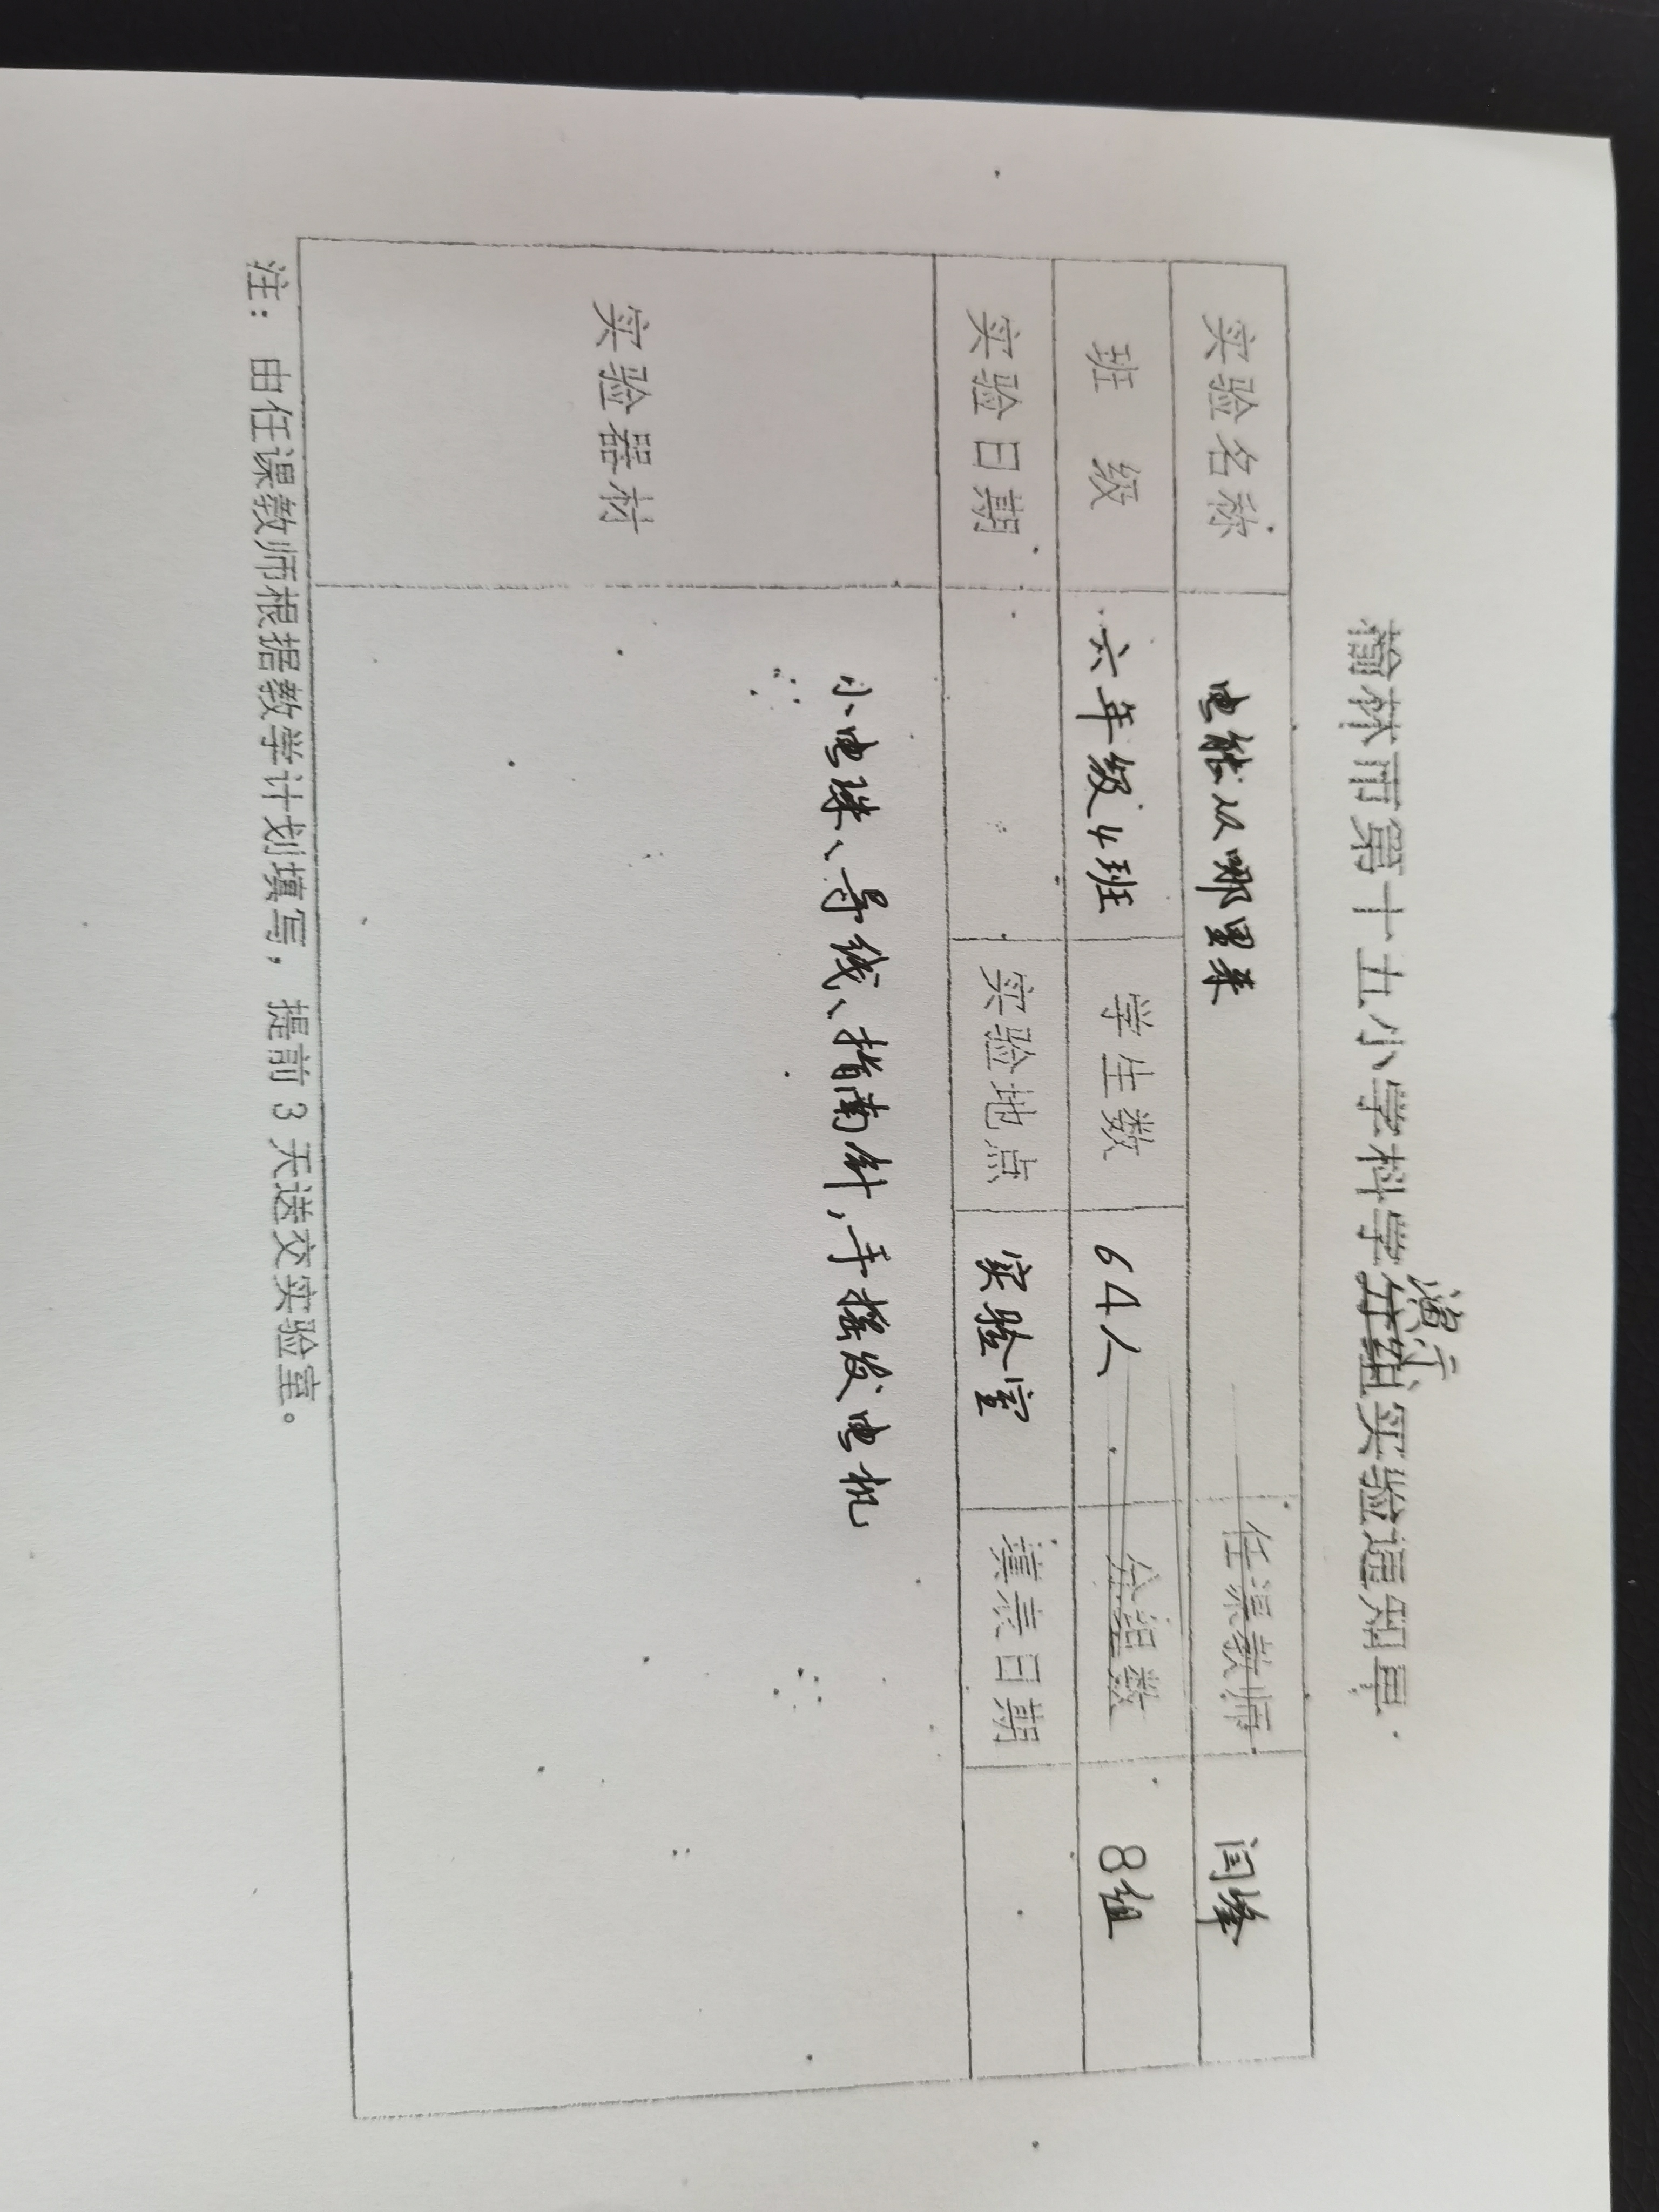 榆林市第十五小学科学分组实验通知单
演示
实验名称 电能从哪里来 任课教师 闫峰
班级 六年级4班 学生数 64人 分组数 8组
实验日期 实验地点 实验室 填表日期
实验器材 小电珠、导线、指南针,手摇发电机
注：由任课教师根据教学计划填写，提前3天送交实验室。